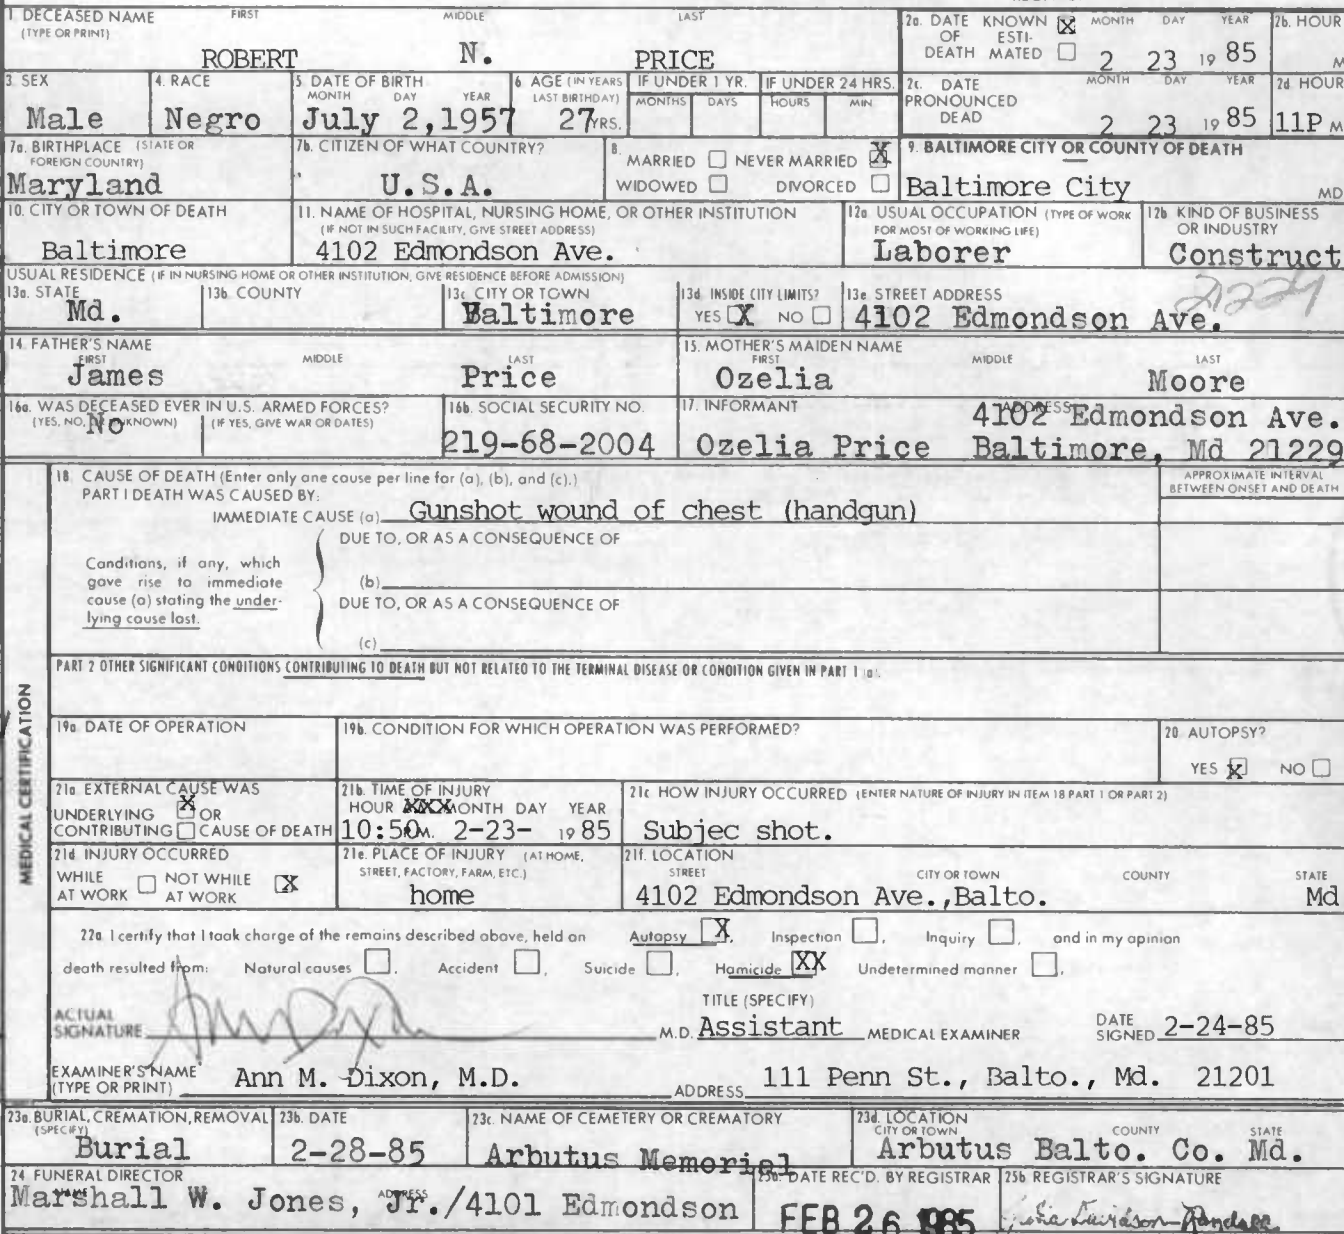 1. DECEASED NAME (TYPE OR PRINT) FIRST MIDDLE LAST
ROBERT N. PRICE
2a. DATE OF DEATH KNOWN X ESTI-MATED MONTH DAY YEAR
2 23 1985
2b. HOUR
M
3. SEX
Male
4. RACE
Negro
5. DATE OF BIRTH MONTH DAY YEAR
July 2,1957
6. AGE (IN YEARS LAST BIRTHDAY)
27 YRS.
IF UNDER 1 YR. MONTHS DAYS
IF UNDER 24 HRS. HOURS MIN
2c. DATE PRONOUNCED DEAD MONTH DAY YEAR
2 23 1985
2d HOUR
11P M
7a. BIRTHPLACE (STATE OR FOREIGN COUNTRY)
Maryland
7b. CITIZEN OF WHAT COUNTRY?
U.S.A.
8. MARRIED NEVER MARRIED X
WIDOWED DIVORCED
9. BALTIMORE CITY OR COUNTY OF DEATH
Baltimore City MD
10. CITY OR TOWN OF DEATH
Baltimore
11. NAME OF HOSPITAL, NURSING HOME, OR OTHER INSTITUTION
(IF NOT IN SUCH FACILITY, GIVE STREET ADDRESS)
4102 Edmondson Ave.
12a USUAL OCCUPATION (TYPE OF WORK FOR MOST OF WORKING LIFE)
Laborer
12b KIND OF BUSINESS OR INDUSTRY
Construct
USUAL RESIDENCE (IF IN NURSING HOME OR OTHER INSTITUTION, GIVE RESIDENCE BEFORE ADMISSION)
13a. STATE
Md.
13b. COUNTY
13c CITY OR TOWN
Baltimore
13d. INSIDE CITY LIMITS?
YES X NO
13e STREET ADDRESS
21229
4102 Edmondson Ave.
14. FATHER'S NAME FIRST MIDDLE LAST
James Price
15. MOTHER'S MAIDEN NAME FIRST MIDDLE LAST
Ozelia Moore
16a. WAS DECEASED EVER IN U.S. ARMED FORCES?
(YES, NO, OR UNKNOWN) (IF YES, GIVE WAR OR DATES)
No
16b. SOCIAL SECURITY NO.
219-68-2004
17. INFORMANT ADDRESS
4102 Edmondson Ave.
Ozelia Price Baltimore, Md 21229
MEDICAL CERTIFICATION
18. CAUSE OF DEATH (Enter only one cause per line for (a), (b), and (c).)
PART I DEATH WAS CAUSED BY:
APPROXIMATE INTERVAL BETWEEN ONSET AND DEATH
IMMEDIATE CAUSE (a) Gunshot wound of chest (handgun)
DUE TO, OR AS A CONSEQUENCE OF
Conditions, if any, which
gave rise to immediate
cause (a) stating the under-
lying cause last.
(b)
DUE TO, OR AS A CONSEQUENCE OF
(c)
PART 2 OTHER SIGNIFICANT CONDITIONS CONTRIBUTING TO DEATH BUT NOT RELATED TO THE TERMINAL DISEASE OR CONDITION GIVEN IN PART 1 (a).
19a. DATE OF OPERATION
19b. CONDITION FOR WHICH OPERATION WAS PERFORMED?
20. AUTOPSY?
YES X NO
21a. EXTERNAL CAUSE WAS
UNDERLYING X OR
CONTRIBUTING CAUSE OF DEATH
21b. TIME OF INJURY
HOUR XXX MONTH DAY YEAR
10:50 M. 2-23- 1985
21c HOW INJURY OCCURRED (ENTER NATURE OF INJURY IN ITEM 18 PART 1 OR PART 2)
Subjec shot.
21d INJURY OCCURRED
WHILE AT WORK NOT WHILE AT WORK X
21e. PLACE OF INJURY (AT HOME, STREET, FACTORY, FARM, ETC.)
home
21f. LOCATION STREET CITY OR TOWN COUNTY STATE
4102 Edmondson Ave.,Balto. Md
22a. I certify that I took charge of the remains described above, held an Autopsy X, Inspection , Inquiry , and in my opinion
death resulted from: Natural causes , Accident , Suicide , Homicide XX Undetermined manner ,
TITLE (SPECIFY)
ACTUAL SIGNATURE M.D. Assistant MEDICAL EXAMINER DATE SIGNED 2-24-85
EXAMINER'S NAME (TYPE OR PRINT) Ann M. Dixon, M.D. ADDRESS 111 Penn St., Balto., Md. 21201
23a. BURIAL, CREMATION, REMOVAL (SPECIFY)
Burial
23b. DATE
2-28-85
23c. NAME OF CEMETERY OR CREMATORY
Arbutus Memorial
23d. LOCATION CITY OR TOWN COUNTY STATE
Arbutus Balto. Co. Md.
24 FUNERAL DIRECTOR ADDRESS
Marshall W. Jones, Jr./4101 Edmondson
25a. DATE REC'D. BY REGISTRAR
FEB 26 1985
25b REGISTRAR'S SIGNATURE
Davidson-Randall